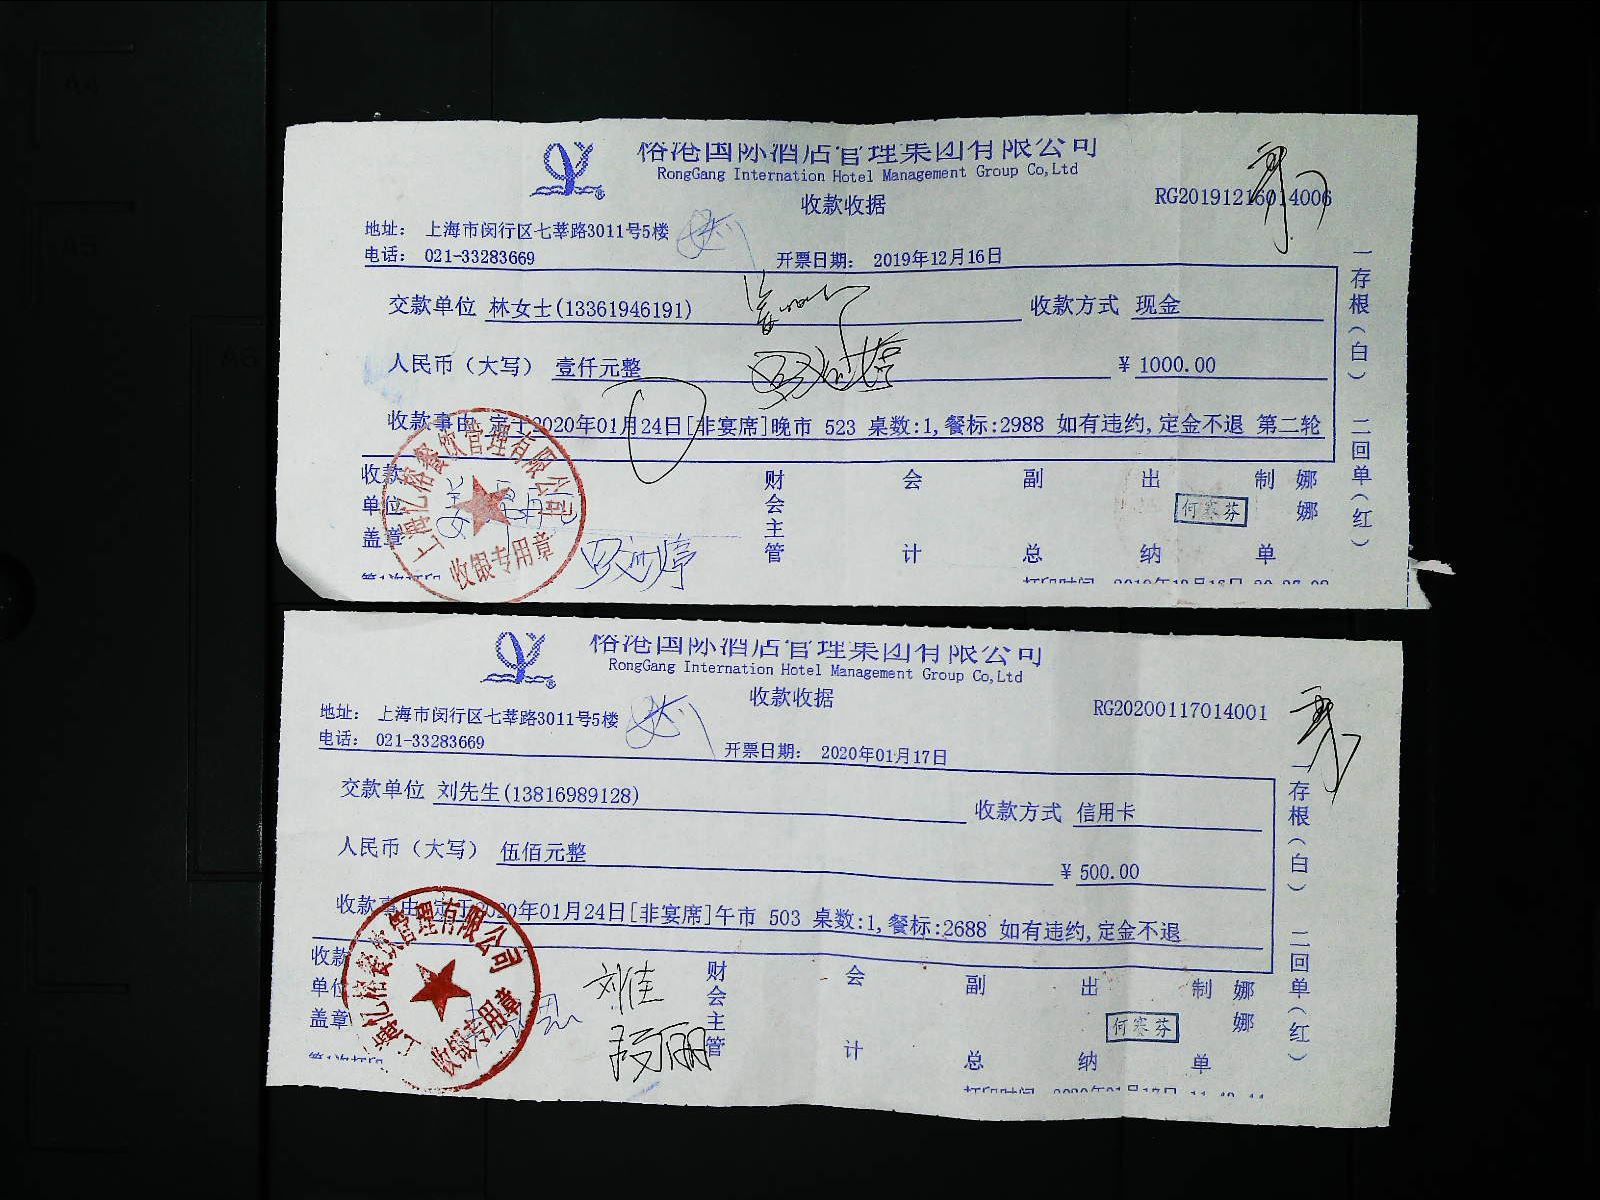 榕港国际酒店管理集团有限公司
RongGang Internation Hotel Management Group Co,Ltd
收款收据
RG20191216014006
地址： 上海市闵行区七莘路3011号5楼
电话： 021-33283669
开票日期： 2019年12月16日
交款单位 林女士(13361946191) 收款方式 现金
人民币（大写） 壹仟元整 ¥ 1000.00
收款事由 定于2020年01月24日[非宴席]晚市 523 桌数:1,餐标:2988 如有违约,定金不退 第二轮
收款单位盖章 财会主管 会计 副总 出纳 何寒芬 制单 娜娜
一存根（白） 二回单（红）
上海忆榕餐饮管理有限公司
收银专用章
第1次打印
打印时间 2019年12月16日
榕港国际酒店管理集团有限公司
RongGang Internation Hotel Management Group Co,Ltd
收款收据
RG20200117014001
地址： 上海市闵行区七莘路3011号5楼
电话： 021-33283669
开票日期： 2020年01月17日
交款单位 刘先生(13816989128) 收款方式 信用卡
人民币（大写） 伍佰元整 ¥ 500.00
收款事由 定于2020年01月24日[非宴席]午市 503 桌数:1,餐标:2688 如有违约,定金不退
收款单位盖章 财会主管 会计 副总 出纳 何寒芬 制单 娜娜
一存根（白） 二回单（红）
上海忆榕餐饮管理有限公司
收银专用章
刘佳
第1次打印
打印时间 2020年01月17日